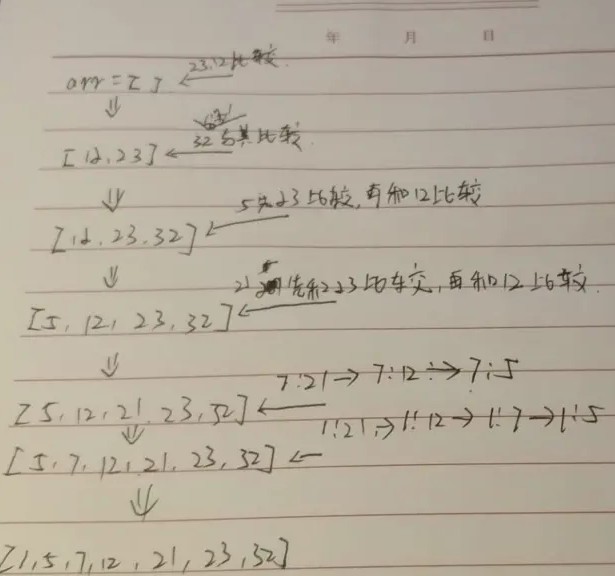 年 月 日
arr = [ ] ← 23,12比较.
⇓
[12,23] ← 32与其比较.
⇓
[12,23,32] ← 5先23比较,再和12比较
⇓
[5,12,23,32] ← 21 先和23比较,再和12比较.
⇓
[5,12,21,23,32] ← 7:21→7:12→7:5
⇓
[5,7,12,21,23,32] ← 1:21→1:12→1:7→1:5
⇓
[1,5,7,12,21,23,32]